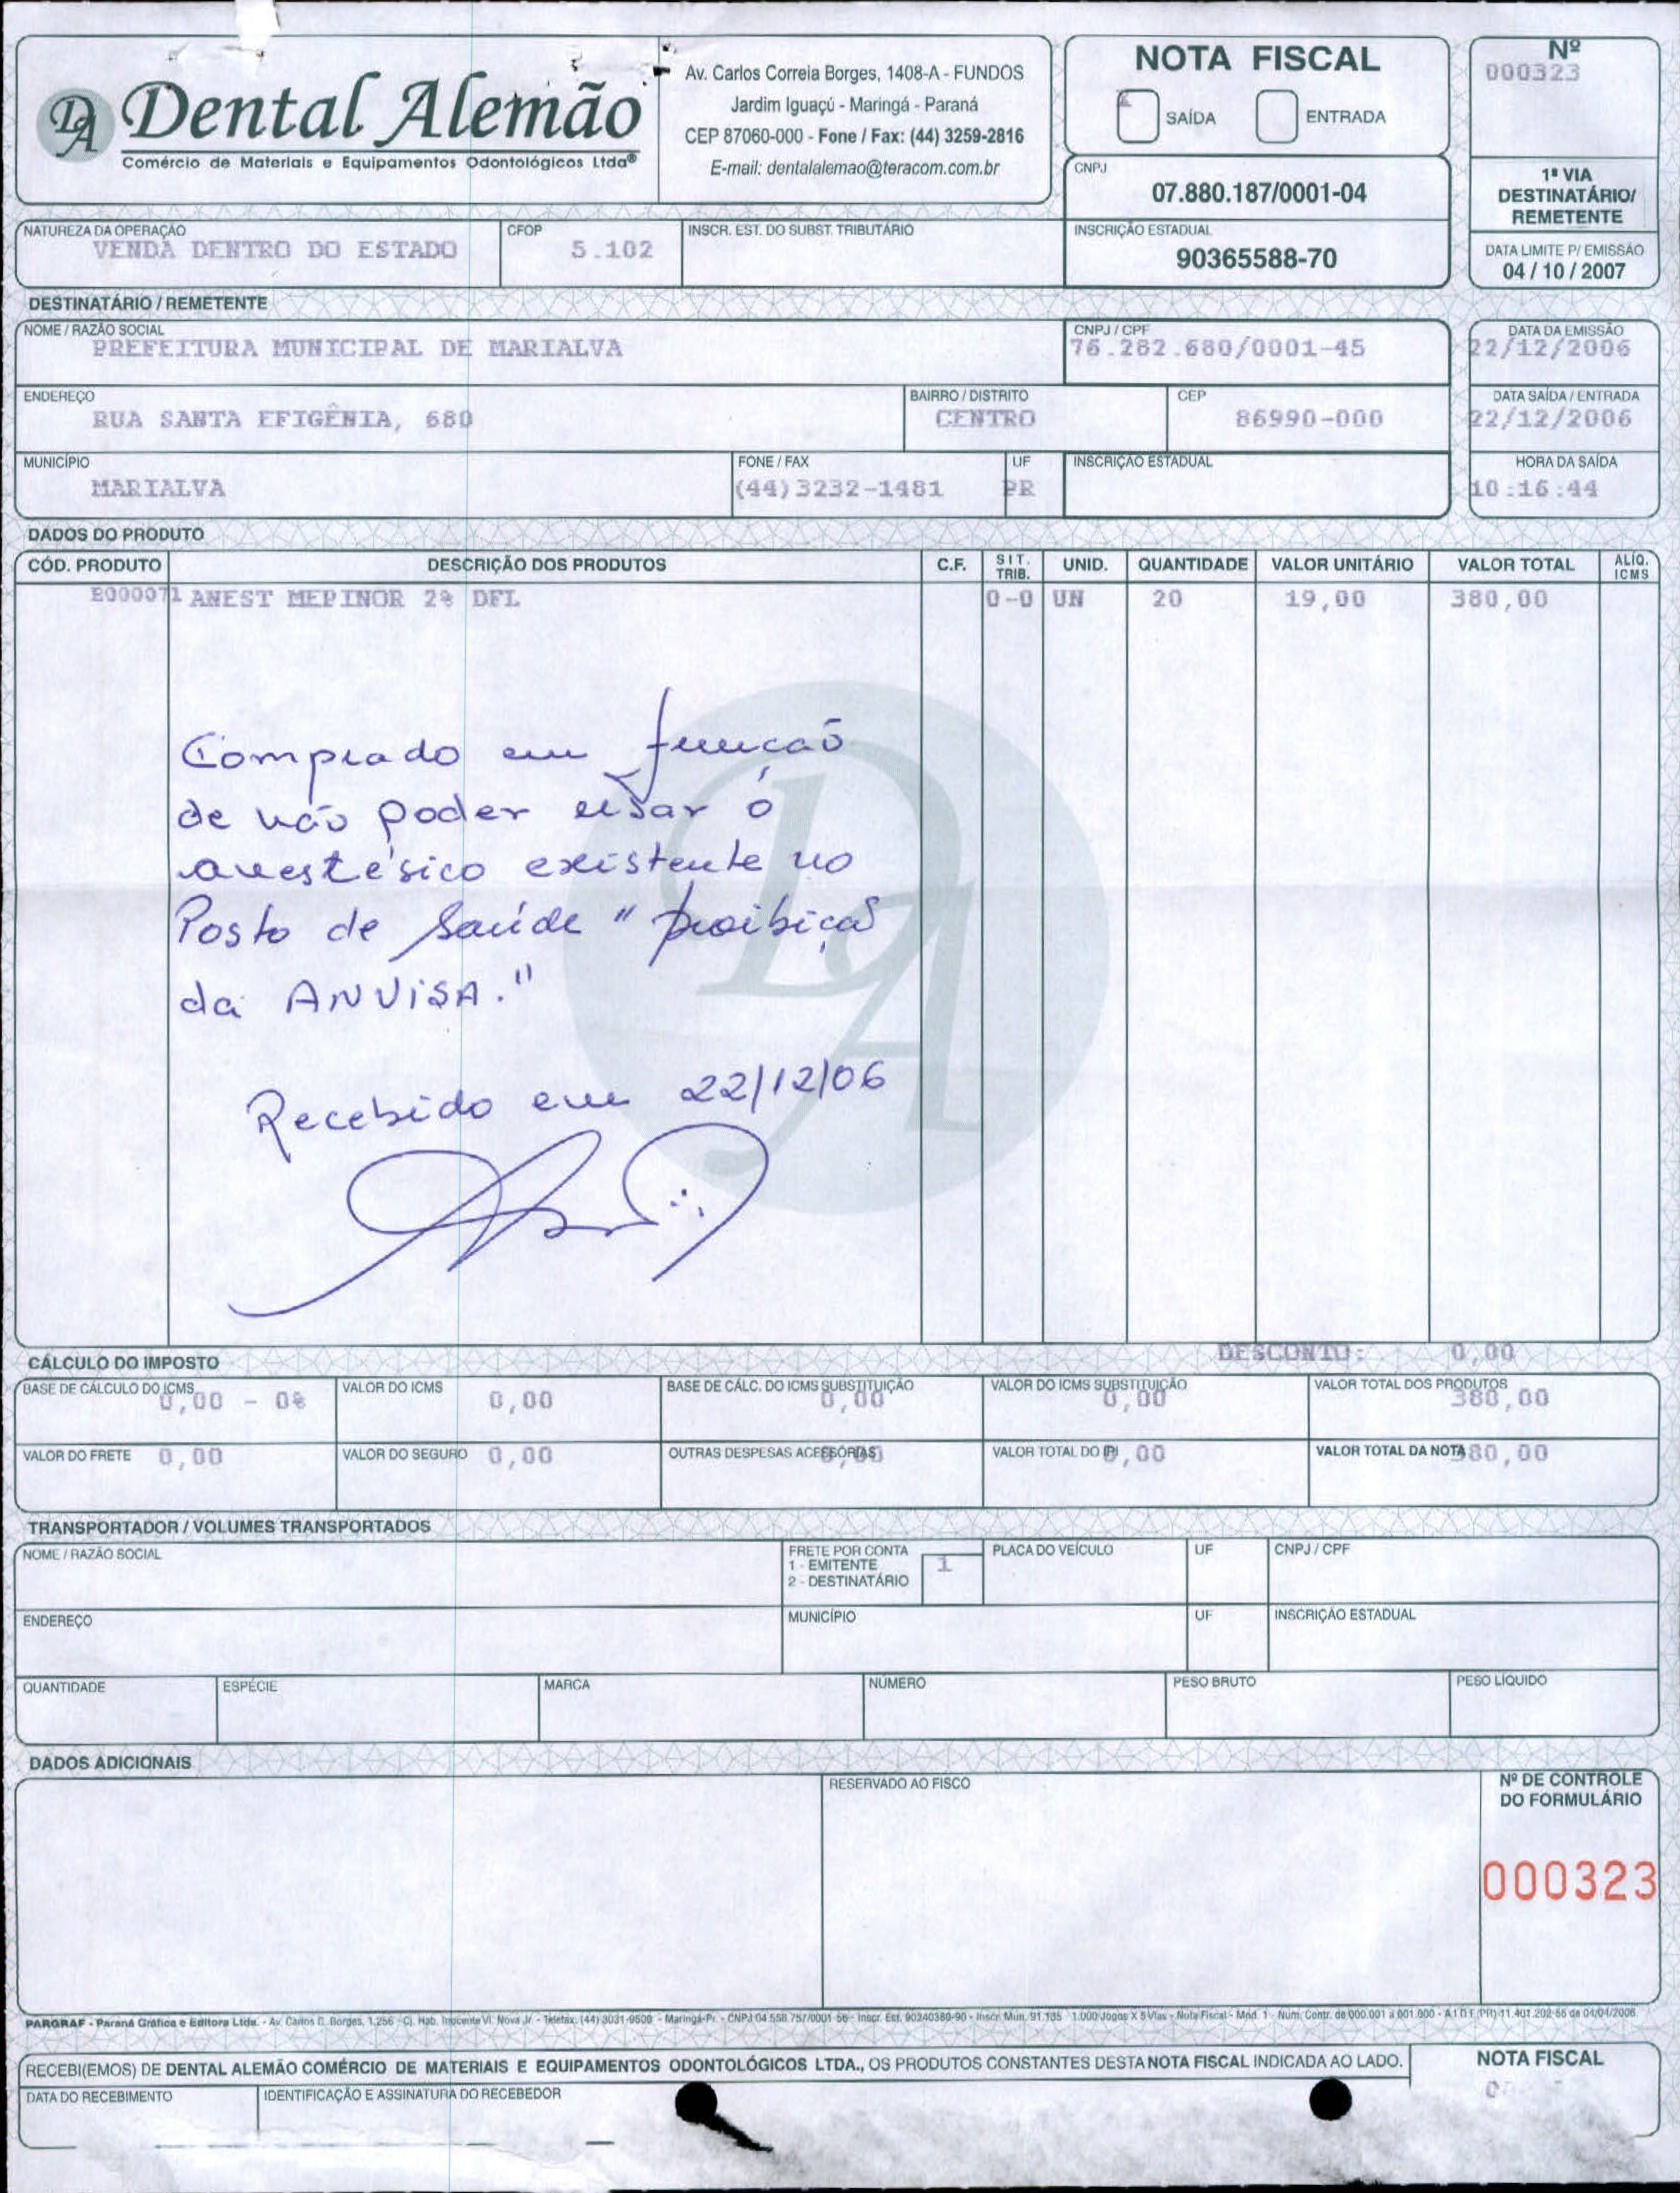 DA Dental Alemão
Comércio de Materiais e Equipamentos Odontológicos Ltda®
Av. Carlos Correia Borges, 1408-A - FUNDOS
Jardim Iguaçú - Maringá - Paraná
CEP 87060-000 - Fone / Fax: (44) 3259-2816
E-mail: dentalalemao@teracom.com.br
NOTA FISCAL
SAÍDA ENTRADA
CNPJ
07.880.187/0001-04
Nº
000323
1ª VIA
DESTINATÁRIO/
REMETENTE
NATUREZA DA OPERAÇÃO
VENDA DENTRO DO ESTADO
CFOP
5.102
INSCR. EST. DO SUBST. TRIBUTÁRIO
INSCRIÇÃO ESTADUAL
90365588-70
DATA LIMITE P/ EMISSÃO
04 / 10 / 2007
DESTINATÁRIO / REMETENTE
NOME / RAZÃO SOCIAL
PREFEITURA MUNICIPAL DE MARIALVA
CNPJ / CPF
76.282.680/0001-45
DATA DA EMISSÃO
22/12/2006
ENDEREÇO
RUA SANTA EFIGÊNIA, 680
BAIRRO / DISTRITO
CENTRO
CEP
86990-000
DATA SAÍDA / ENTRADA
22/12/2006
MUNICÍPIO
MARIALVA
FONE / FAX
(44)3232-1481
UF
PR
INSCRIÇÃO ESTADUAL
HORA DA SAÍDA
10:16:44
DADOS DO PRODUTO
CÓD. PRODUTO DESCRIÇÃO DOS PRODUTOS C.F. SIT. TRIB. UNID. QUANTIDADE VALOR UNITÁRIO VALOR TOTAL ALÍQ. ICMS
E000071 ANEST MEPINOR 2% DFL 0-0 UN 20 19,00 380,00
Comprado em função
de não poder usar o
anestésico existente no
Posto de Saúde "proibição
da ANVISA."
Recebido em 22/12/06
DA
DESCONTO: 0,00
CÁLCULO DO IMPOSTO
BASE DE CÁLCULO DO ICMS
0,00 - 0%
VALOR DO ICMS
0,00
BASE DE CÁLC. DO ICMS SUBSTITUIÇÃO
0,00
VALOR DO ICMS SUBSTITUIÇÃO
0,00
VALOR TOTAL DOS PRODUTOS
380,00
VALOR DO FRETE 0,00
VALOR DO SEGURO 0,00
OUTRAS DESPESAS ACESSÓRIAS 0,00
VALOR TOTAL DO IPI 0,00
VALOR TOTAL DA NOTA 380,00
TRANSPORTADOR / VOLUMES TRANSPORTADOS
NOME / RAZÃO SOCIAL
FRETE POR CONTA
1 - EMITENTE
2 - DESTINATÁRIO
1
PLACA DO VEÍCULO
UF
CNPJ / CPF
ENDEREÇO
MUNICÍPIO
UF
INSCRIÇÃO ESTADUAL
QUANTIDADE
ESPÉCIE
MARCA
NÚMERO
PESO BRUTO
PESO LÍQUIDO
DADOS ADICIONAIS
RESERVADO AO FISCO
Nº DE CONTROLE
DO FORMULÁRIO
000323
PARGRAF - Paraná Gráfica e Editora Ltda. - Av. Carlos C. Borges, 1.256 - Cj. Hab. Inocente VI. Nova Jr - Telefax: (44) 3031-9500 - Maringá-Pr. - CNPJ 04.558.757/0001-56 - Inscr. Est. 90240389-90 - Inscr. Mun. 91.135 1.000 Jogos X 5 Vias - Nota Fiscal - Mod. 1 - Num. Contr. de 000.001 a 001.000 - A.I.D.F. (PR) 11.401.202-56 de 04/04/2006
RECEBI(EMOS) DE DENTAL ALEMÃO COMÉRCIO DE MATERIAIS E EQUIPAMENTOS ODONTOLÓGICOS LTDA., OS PRODUTOS CONSTANTES DESTA NOTA FISCAL INDICADA AO LADO.
NOTA FISCAL
DATA DO RECEBIMENTO
IDENTIFICAÇÃO E ASSINATURA DO RECEBEDOR